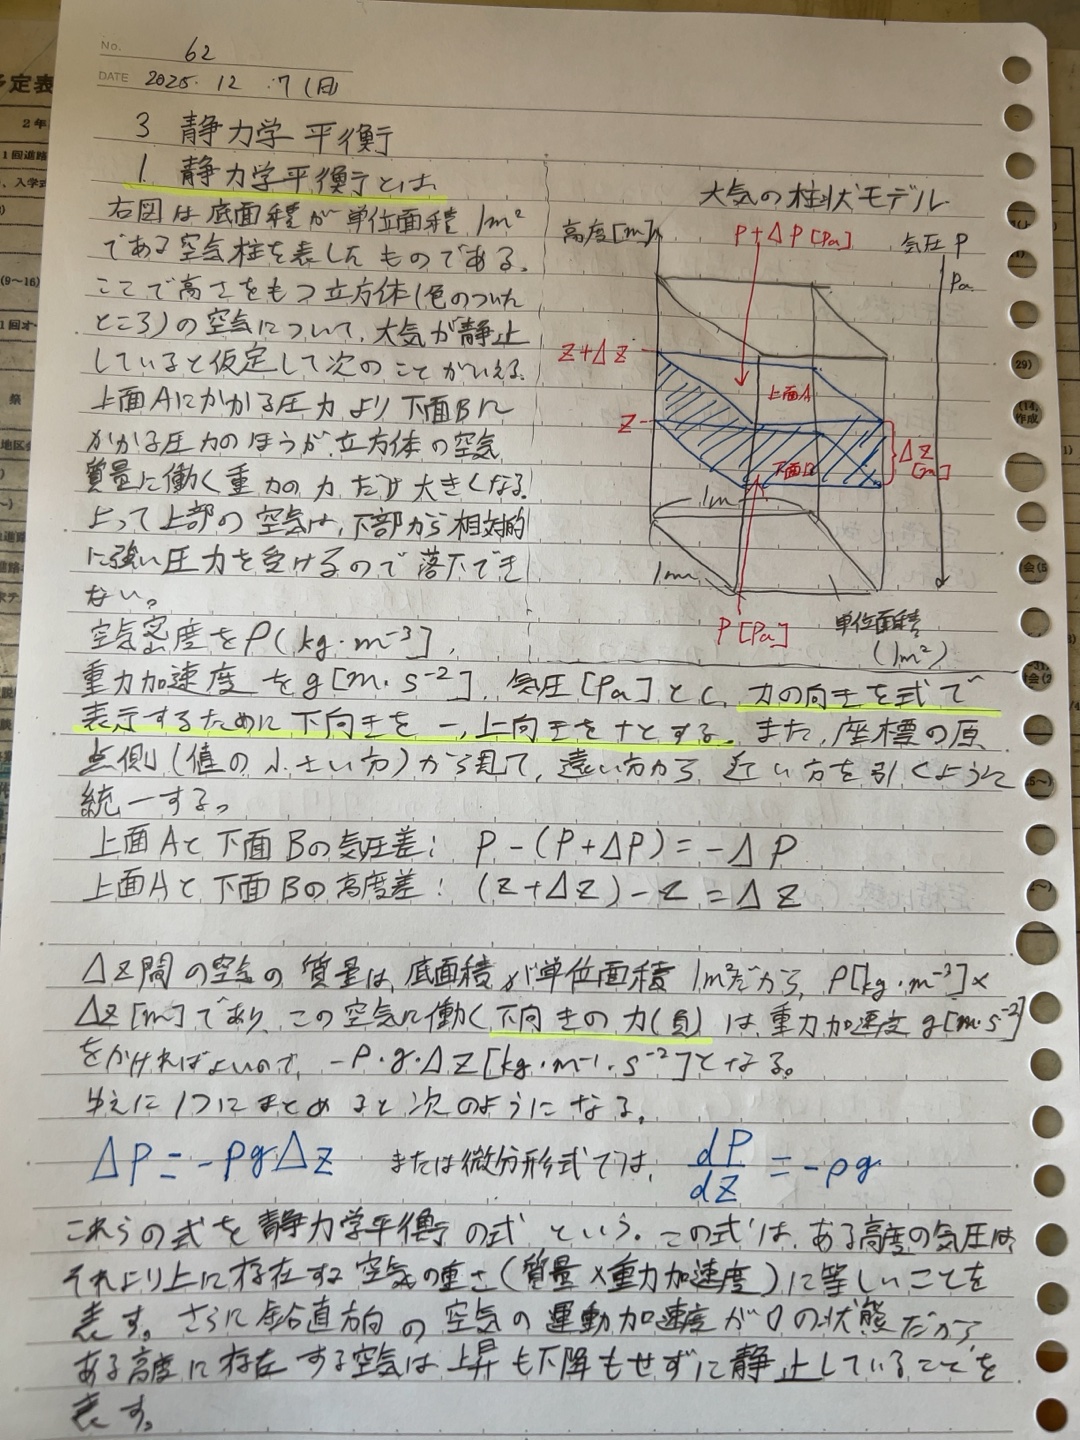 No. 62
DATE 2025. 12 . 7 (日)
3 静力学平衡
1. 静力学平衡とは
右図は底面積が単位面積 1m²
である空気柱を表したものである。
ここで高さをもつ立方体(色のついた
ところ)の空気について、大気が静止
していると仮定して次のことがいえる。
上面Aにかかる圧力より下面Bに
かかる圧力のほうが、立方体の空気
質量に働く重力の力だけ大きくなる。
よって上部の空気は、下部から相対的
に強い圧力を受けるので落下でき
ない。
大気の柱状モデル
高度[m]
P+ΔP[Pa]
気圧P
Pa
Z+ΔZ
上面A
Z
ΔZ
[m]
下面B
1m
1m
P[Pa]
単位面積
(1m²)
空気密度をρ(kg·m⁻³]、
重力加速度をg[m·s⁻²]、気圧[Pa]とし、力の向きを式で
表示するために下向きを-、上向きを+とする。また、座標の原
点側(値の小さい方)から見て、遠い方から近い方を引くように
統一する。
上面Aと下面Bの気圧差: P-(P+ΔP)=-ΔP
上面Aと下面Bの高度差: (Z+ΔZ)-Z=ΔZ
ΔZ間の空気の質量は、底面積が単位面積1m²だから、ρ[kg·m⁻³]×
ΔZ[m]であり、この空気に働く下向きの力(負)は重力加速度g[m·s⁻²]
をかければよいので、-ρ·g·ΔZ[kg·m⁻¹·s⁻²]となる。
ゆえに1つにまとめると次のようになる。
ΔP=-ρgΔZ または微分形式では、 dP/dZ=-ρg
これらの式を静力学平衡の式という。この式は、ある高度の気圧は、
それより上に存在する空気の重さ(質量×重力加速度)に等しいことを
表す。さらに鉛直方向の空気の運動加速度が0の状態だから、
ある高度に存在する空気は上昇も下降もせずに静止していることを
表す。